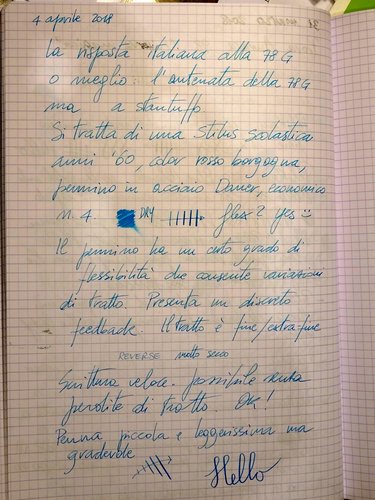 4 aprile 2018
La risposta italiana alla 78G
o meglio l'antenata della 78G
ma a stantuffo
Si tratta di una Stilus scolastica
anni '60, color rosso borgogna,
pennino in acciaio Dauer, economico
n. 4. DRY flex? yes
Il pennino ha un certo grado di
flessibilità che consente variazioni
di tratto. Presenta un discreto
feedback. Il tratto è fine/extra-fine
REVERSE molto secco
Scrittura veloce. possibile senza
perdite di tratto OK!
Penna piccola e leggerissima ma
gradevole
Hello